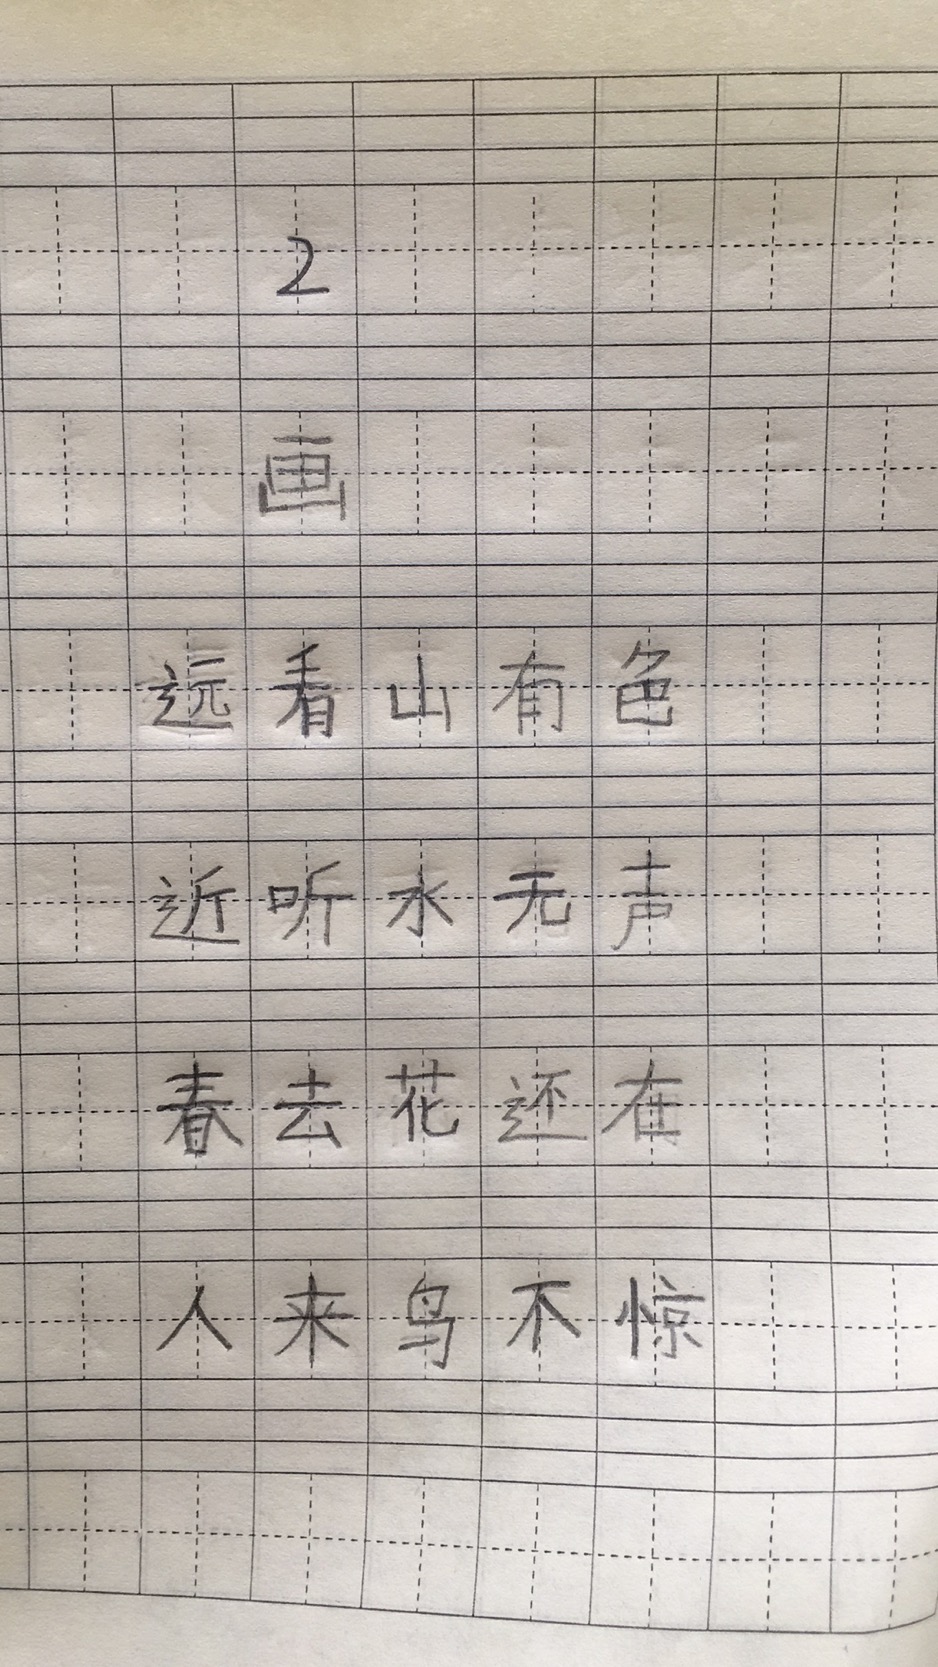 2
画
远看山有色
近听水无声
春去花还在
人来鸟不惊